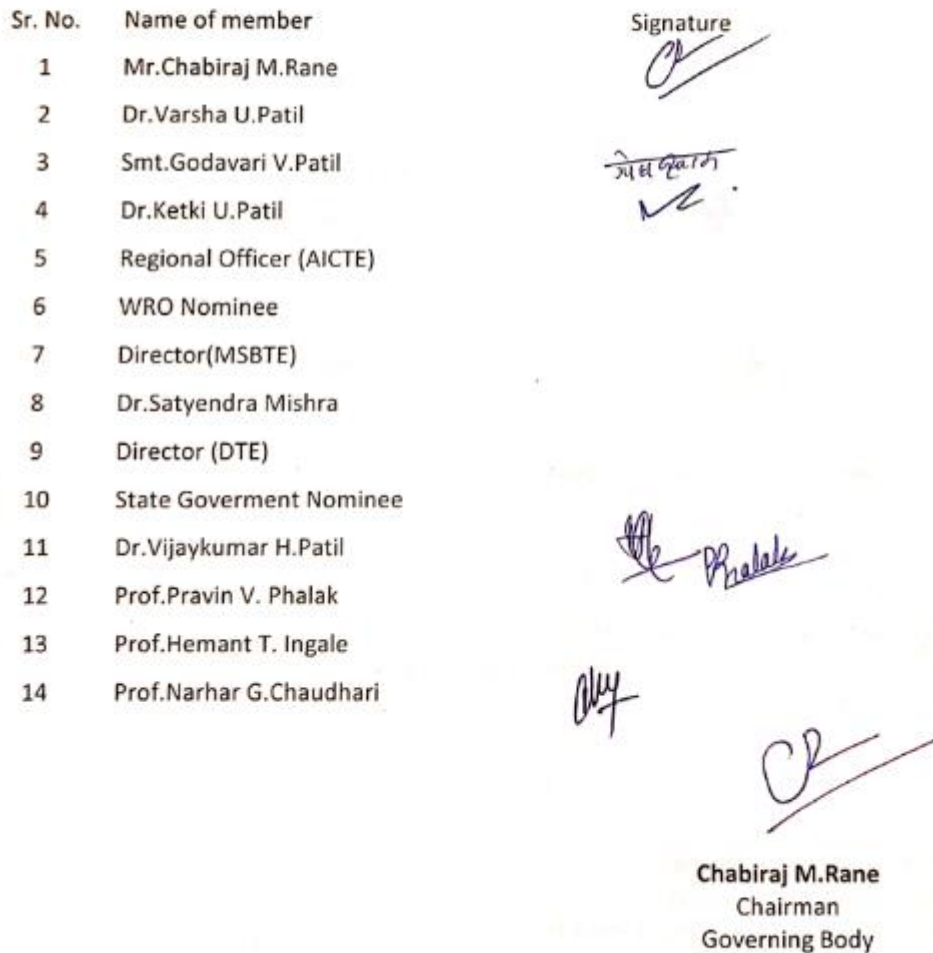 Sr. No. Name of member Signature
1 Mr.Chabiraj M.Rane
2 Dr.Varsha U.Patil
3 Smt.Godavari V.Patil
4 Dr.Ketki U.Patil
5 Regional Officer (AICTE)
6 WRO Nominee
7 Director(MSBTE)
8 Dr.Satyendra Mishra
9 Director (DTE)
10 State Goverment Nominee
11 Dr.Vijaykumar H.Patil
12 Prof.Pravin V. Phalak Phalak
13 Prof.Hemant T. Ingale
14 Prof.Narhar G.Chaudhari
Chabiraj M.Rane
Chairman
Governing Body